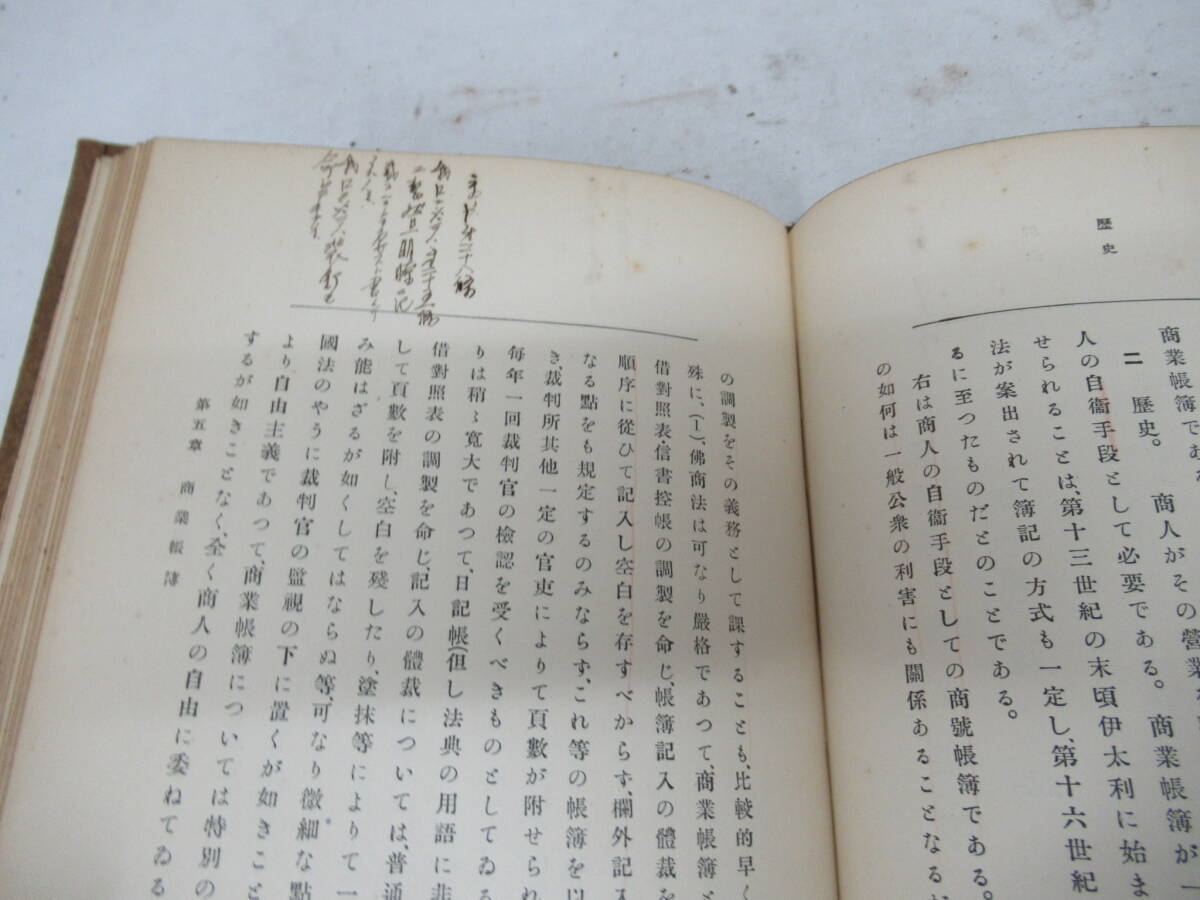 歷史
商業帳簿である
二　歷史。　商人がその營業
人の自衞手段として必要である。商業帳簿が一
せられることは、第十三世紀の末頃伊太利に始ま
法が案出されて簿記の方式も一定し、第十六世紀
るに至つたものだとのことである。
右は商人の自衞手段としての商號帳簿である。
の如何は一般公衆の利害にも關係あることなるが
の調製をその義務として課することも、比較的早く
殊に、(1)、佛商法は可なり嚴格であつて、商業帳簿と
借對照表・信書控帳の調製を命じ、帳簿記入の體裁を
順序に從ひて記入し空白を存すべからず、欄外記入
なる點をも規定するのみならず、これ等の帳簿を以
き、裁判所其他一定の官吏によりて頁數が附せられ
每年一回裁判官の檢認を受くべきものとしてゐる
りは稍〻寬大であつて、日記帳(但し法典の用語に非
借對照表の調製を命じ、記入の體裁については、普通
して頁數を附し、空白を殘したり、塗抹等によりて一
み能はざるが如くしてはならぬ等、可なり微細な點
國法のやうに裁判官の監視の下に置くが如きこと
より自由主義であつて、商業帳簿については特別の
するが如きことなく、全く商人の自由に委ねてゐる
第五章　商業帳簿